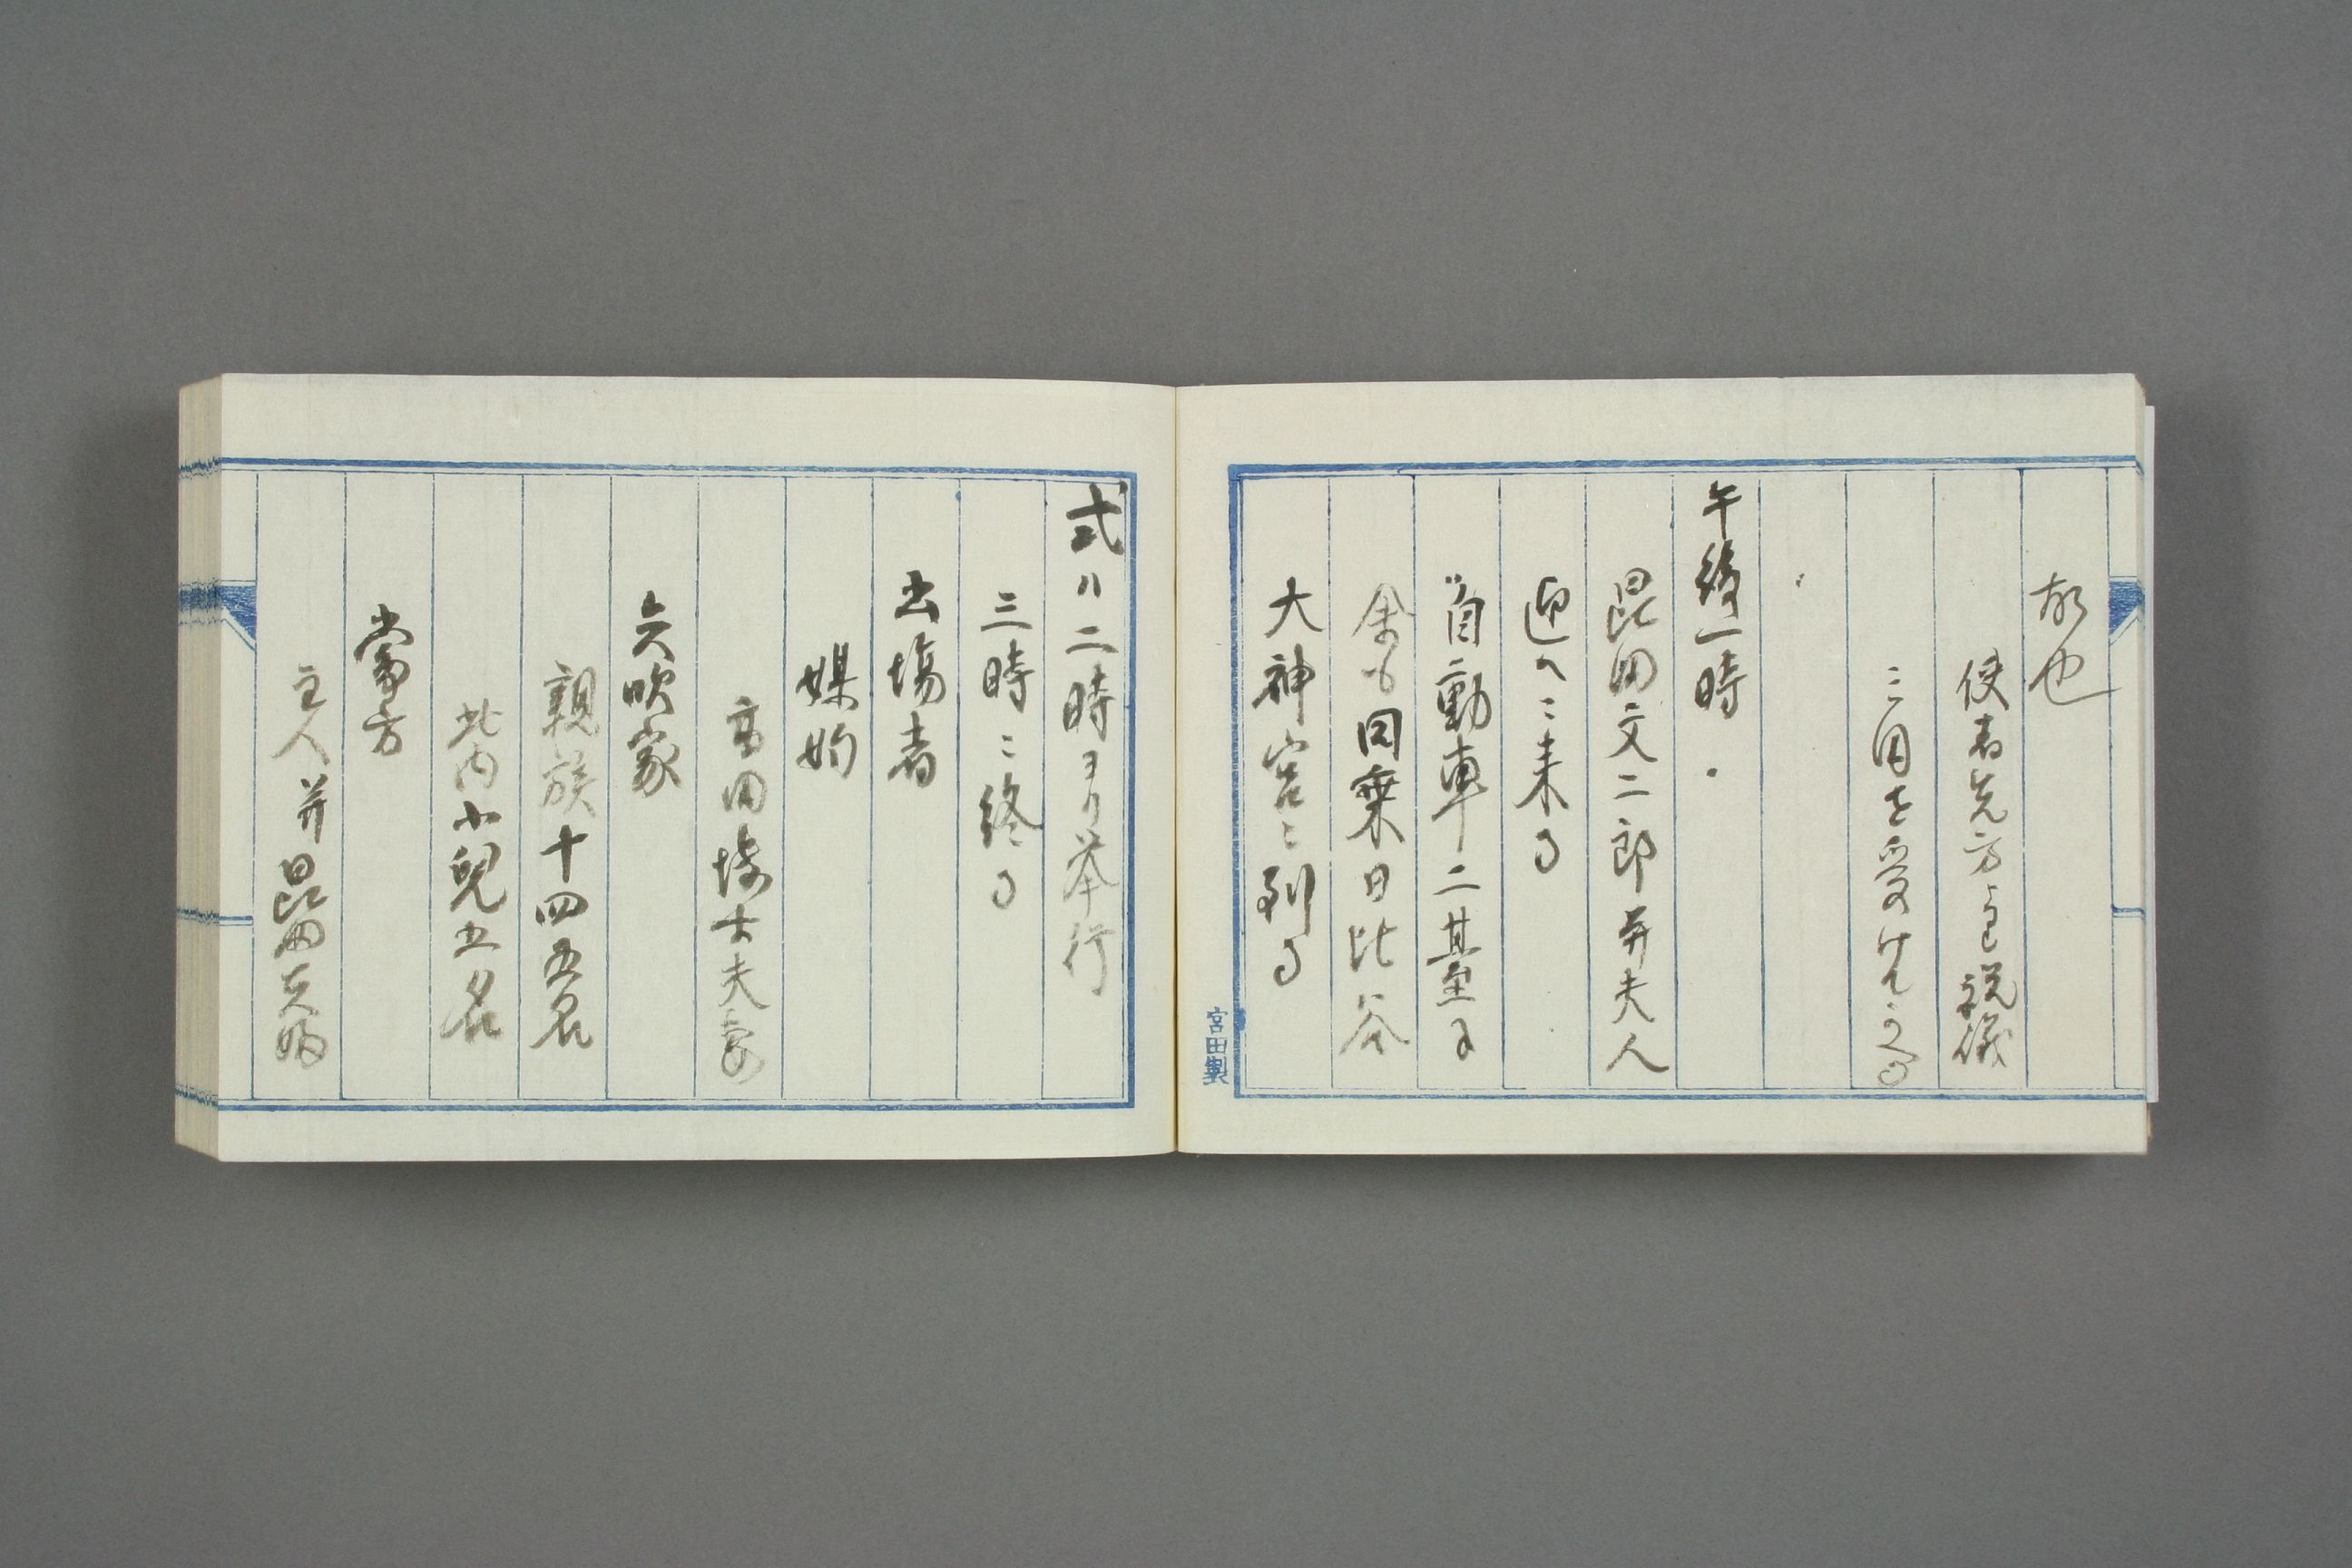 故也
使者先方より祝儀
三円を受けて
午後一時.
昆田文二郎并夫人
迎へニ来る
自動車二基に
余も同乗日比谷
大神宮ニ到る
宮田製
式ハ二時ヨリ举行
三時ニ終る
出場者
媒妁
高田博士夫妻
矢吹家
親族十四五名
此内小児五名
當方
主人并昆田夫婦